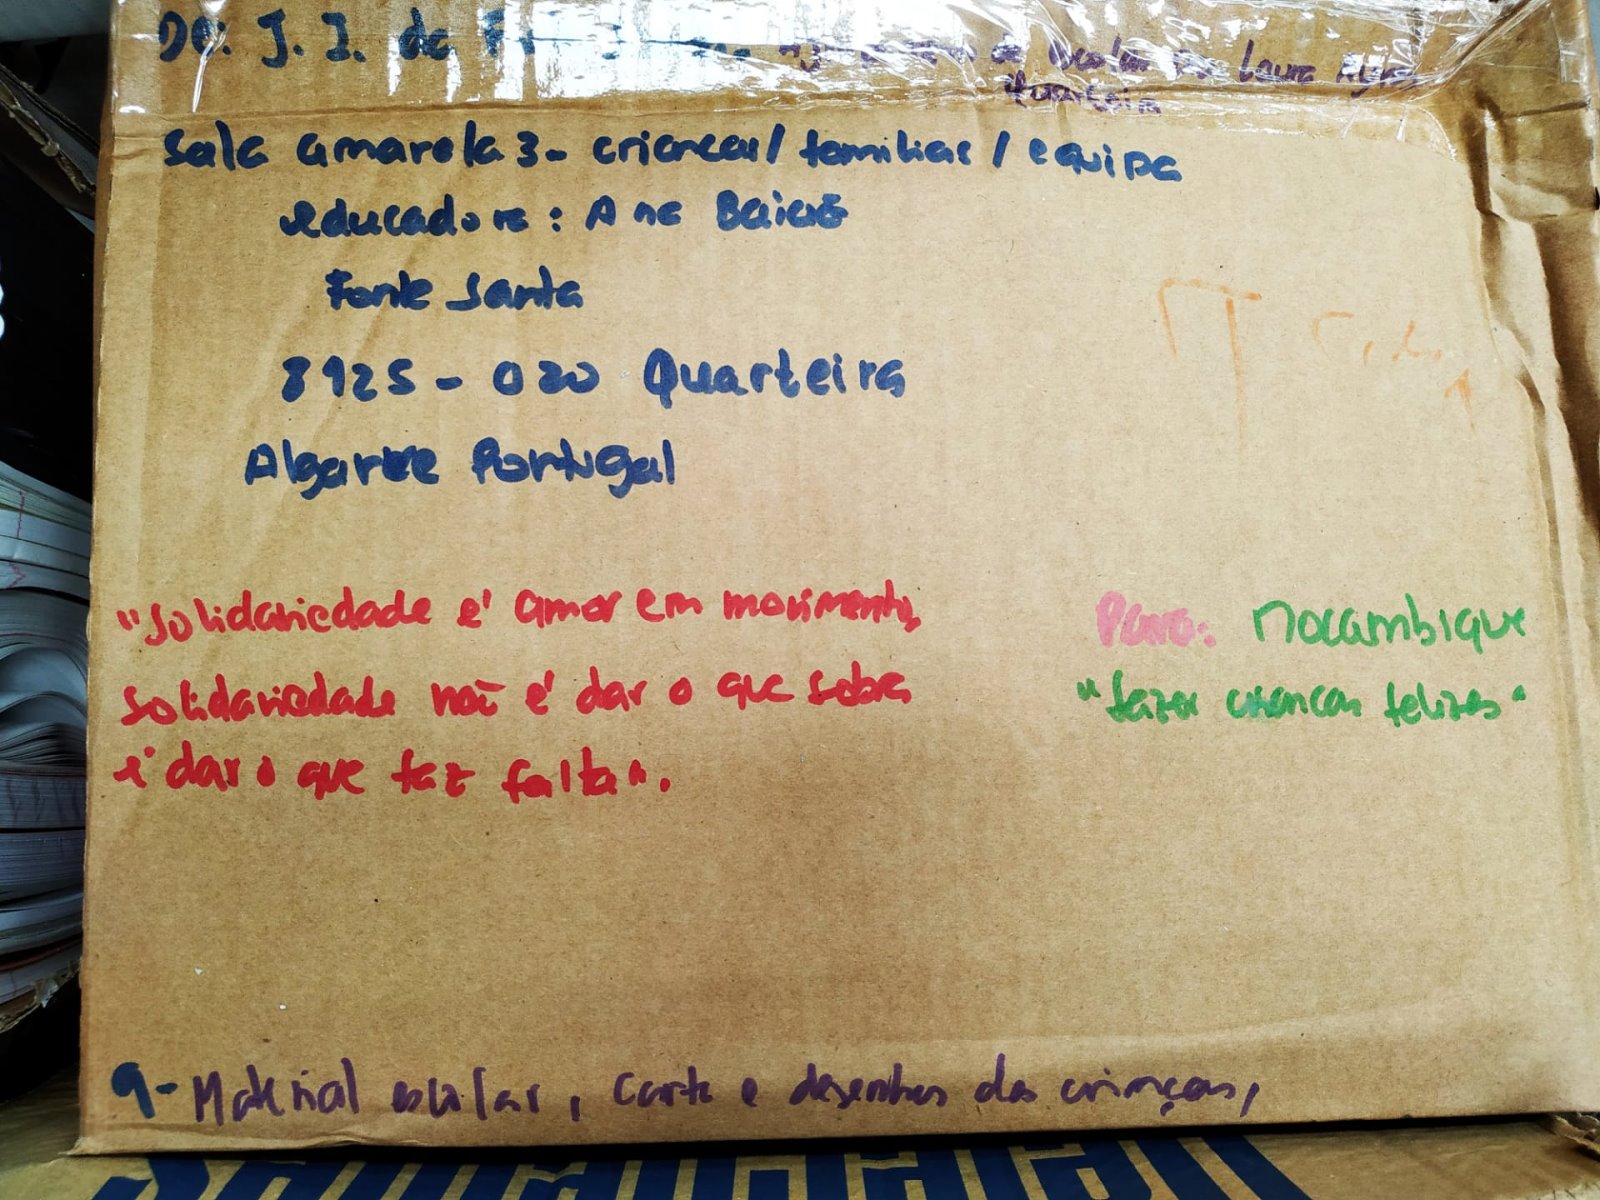 DO. J. I. de
de Laura Ayres
Quarteira
Sala amarela 3 - crianças / famílias / equipa
educadora : Ana Baião
Fonte Santa
8125 - 020 Quarteira
Algarve Portugal
"Solidariedade é amor em movimento,
Solidariedade não é dar o que sobra
é dar o que faz falta".
Para: Moçambique
"fazer crianças felizes"
9 - Material escolar, carta e desenhos das crianças,